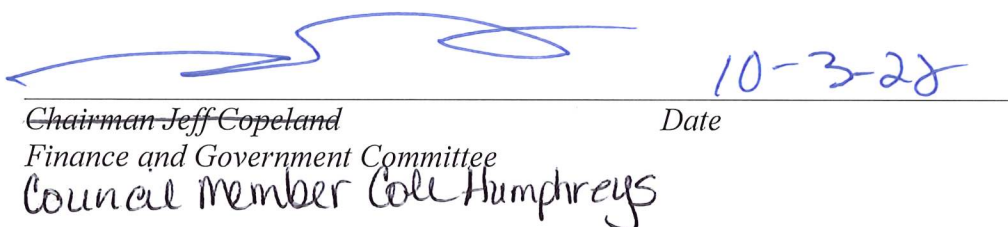 10-3-22
Chairman Jeff Copeland Date
Finance and Government Committee
Council Member Cole Humphreys